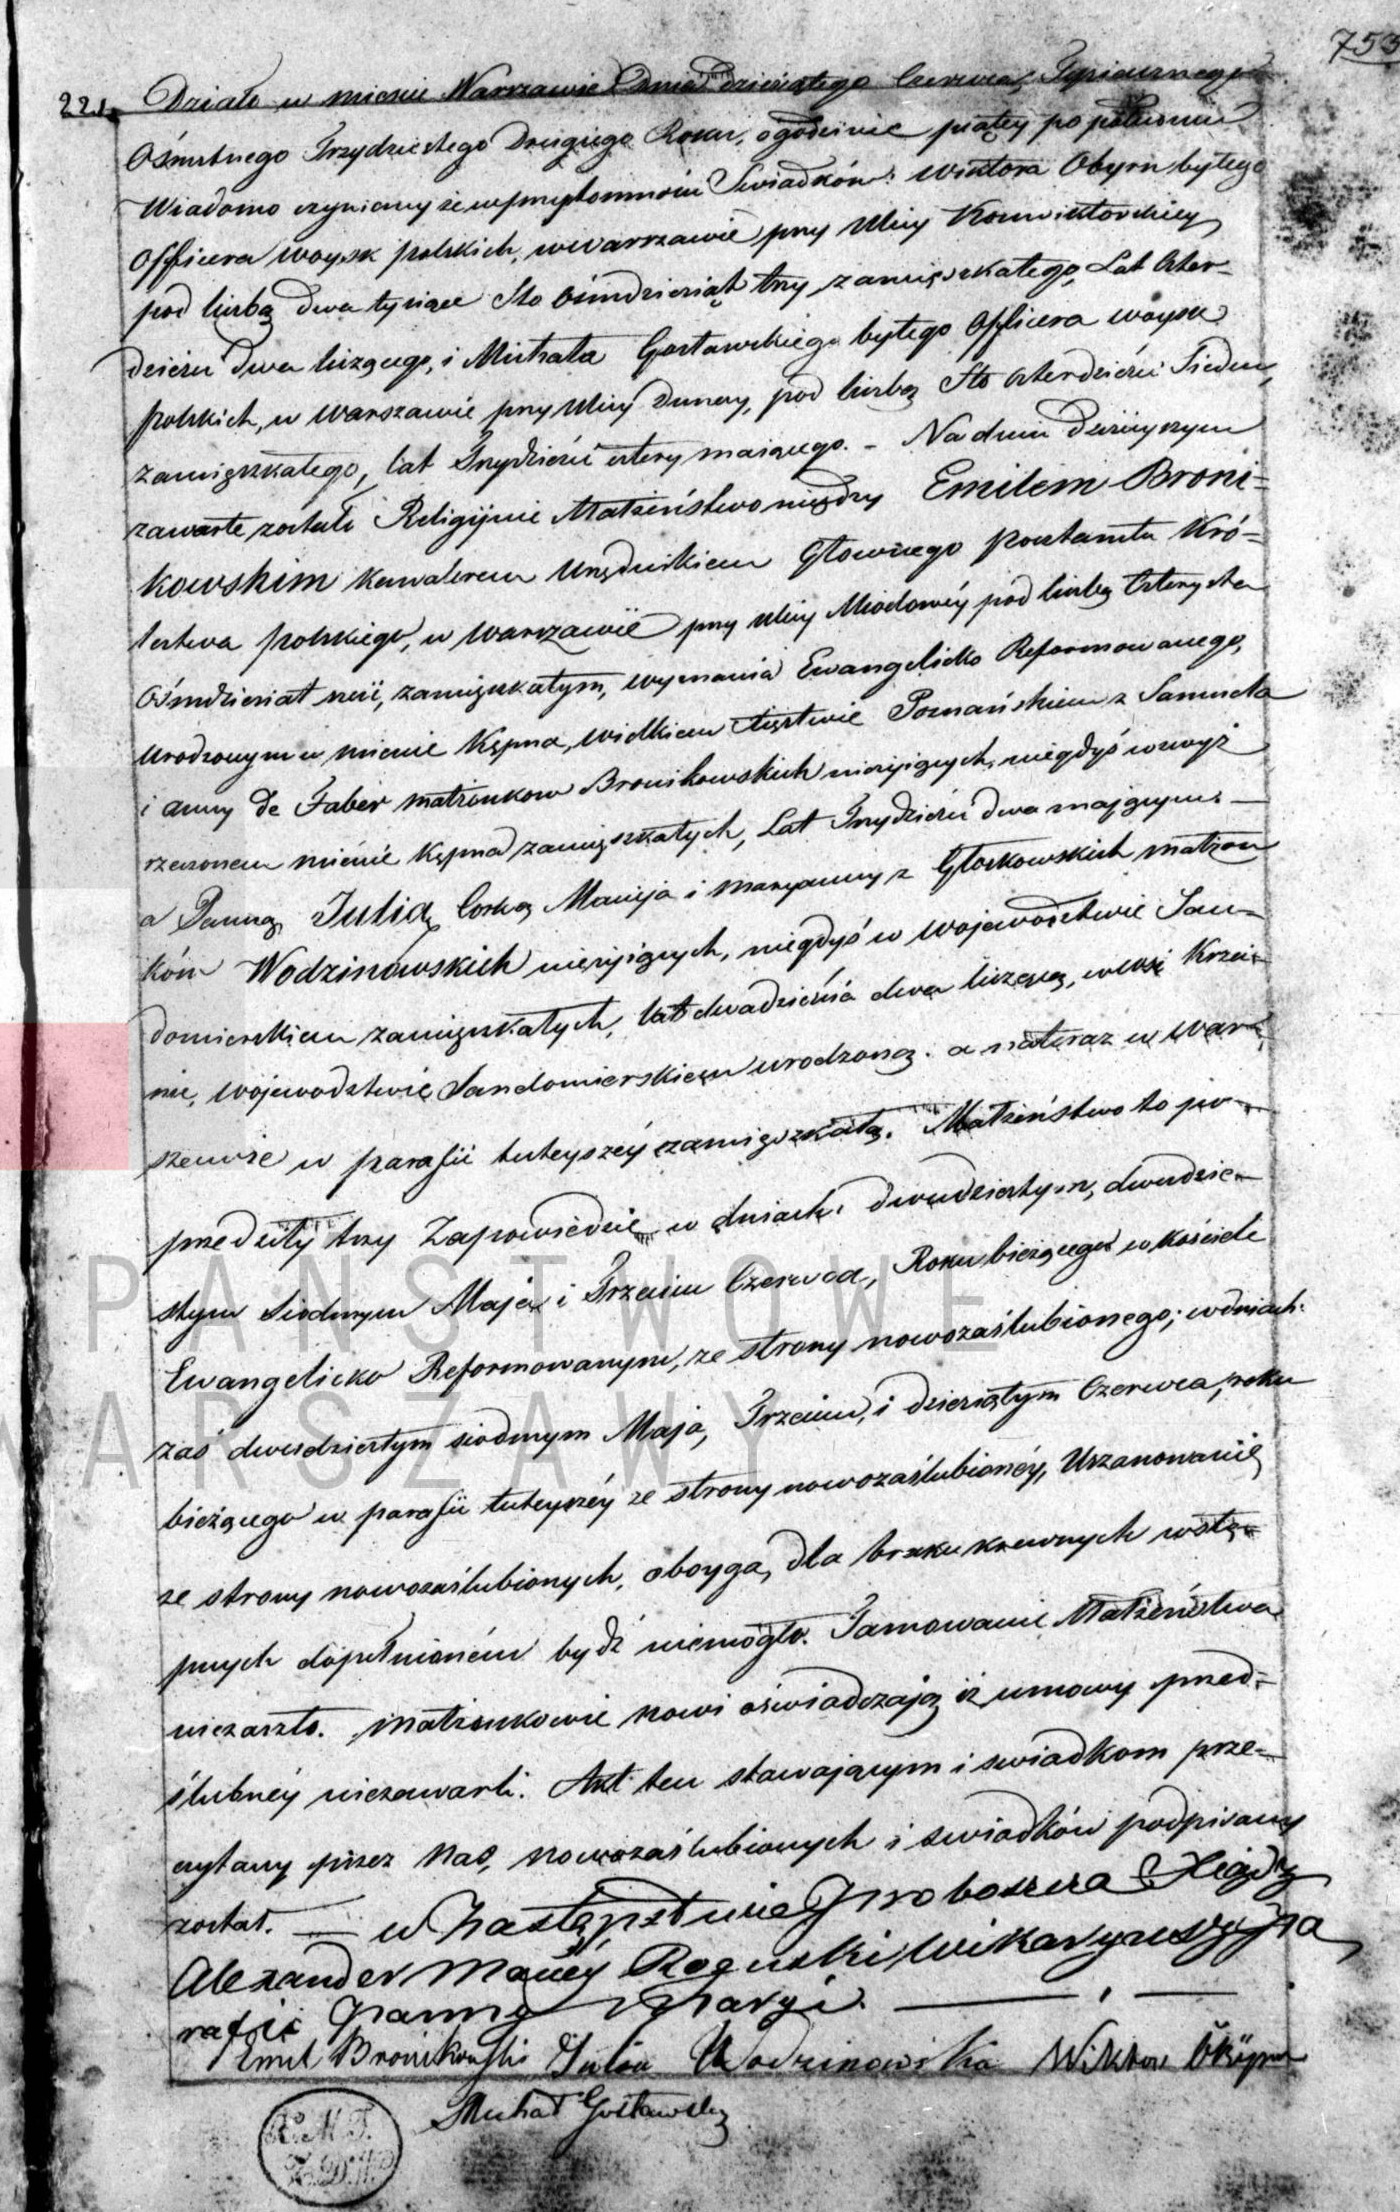 753
221. Działo w mieście Warszawie Dnia dziesiątego Czerwca, Tysiącznego
Ośmsetnego Trzydziestego Drugiego Roku, o godzinie piątey po południu
Wiadomo czyniemy że w przytomności Swiadków: Wiktora Obyrn byłego
Officera woysk polskich, w warszawie przy Ulicy Konwiktorskiey
pod liczbą dwa tysiące Sto ośmdziesiąt trzy zamięszkałego, Lat czter-
dzieści dwa liczącego, i Michała Gosławskiego byłego Officera woysk
polskich, w warszawie przy Ulicy Dunay, pod liczbą Sto czterdzieści Siedm,
zamięszkałego, lat Trzydzieści cztery maiącego. – Na dniu dzisieyszym
zawarte zostało Religijnie Małżeństwo między Emilem Broni-
kowskim kawalerem Urzędnikiem Głownego pocztamtu Kró-
lestwa polskiego, w warszawie przy Ulicy Miodowéy pod liczbą Czterysta
Ośmdziesiąt zamięszkałym, wyznania Ewangelicko Reformowanego,
Urodzonym w mieście Kępna, wielkiem Xięstwie Poznańskiem z Samuela
i anny de Faber małżonkow Bronikowskich nieżyiących, niegdyś w wyż
rzeczonem mieście Kępna zamięszkałych, Lat Trzydzieści dwa mającym. —
a Panną Julią Corką Macieja i maryanny z Głoskowskich małżon
ków Wodzinowskich nieżyiących, niegdyś w Województwie San-
domierskiem zamięszkałych, lat dwadzieścia dwa liczącą, w wsi Krzci-
nie, województwie Sandomierskiem urodzoną. a na teraz w War-
szawie w parafii tuteyszéy zamięszkałą. Małżeństwo to po-
przedziły trzy Zapowiedzie w dniach: dwudziestym, dwudzie-
stym siodmym Maja i Trzecim Czerwca, Roku bieżącego w kościele
Ewangelicko Reformowanym, ze strony nowozaślubionego; w dniach
zaś dwudziestym siodmym Maja, Trzecim, i dziesiątym Czerwca, roku
bieżącego w parafii tuteyszéy ze strony nowozaślubionéy, Uszanowanie
ze strony nowozaślubionych, oboyga, dla braku krewnych wstę-
pnych dopełnioném bydź niemogło. Tamowanie Małżeństwa
niezaszło. Małżonkowie nowi oświadczają iż umowy przed-
ślubnéy niezawarli. Akt ten stawającym i swiadkom prze-
czytany przez Nas, nowozaślubionych i swiadków podpisany
został. — w Zastępstwie Proboszcza Xiądz
Alexander Maciéy Roguski, Wikaryusz pa
rafii Panny Maryi. —
Emil Bronikowski Julia Wodzinowska Wiktor
Michał Gosławski
PAŃSTWOWE
WARSZAWY